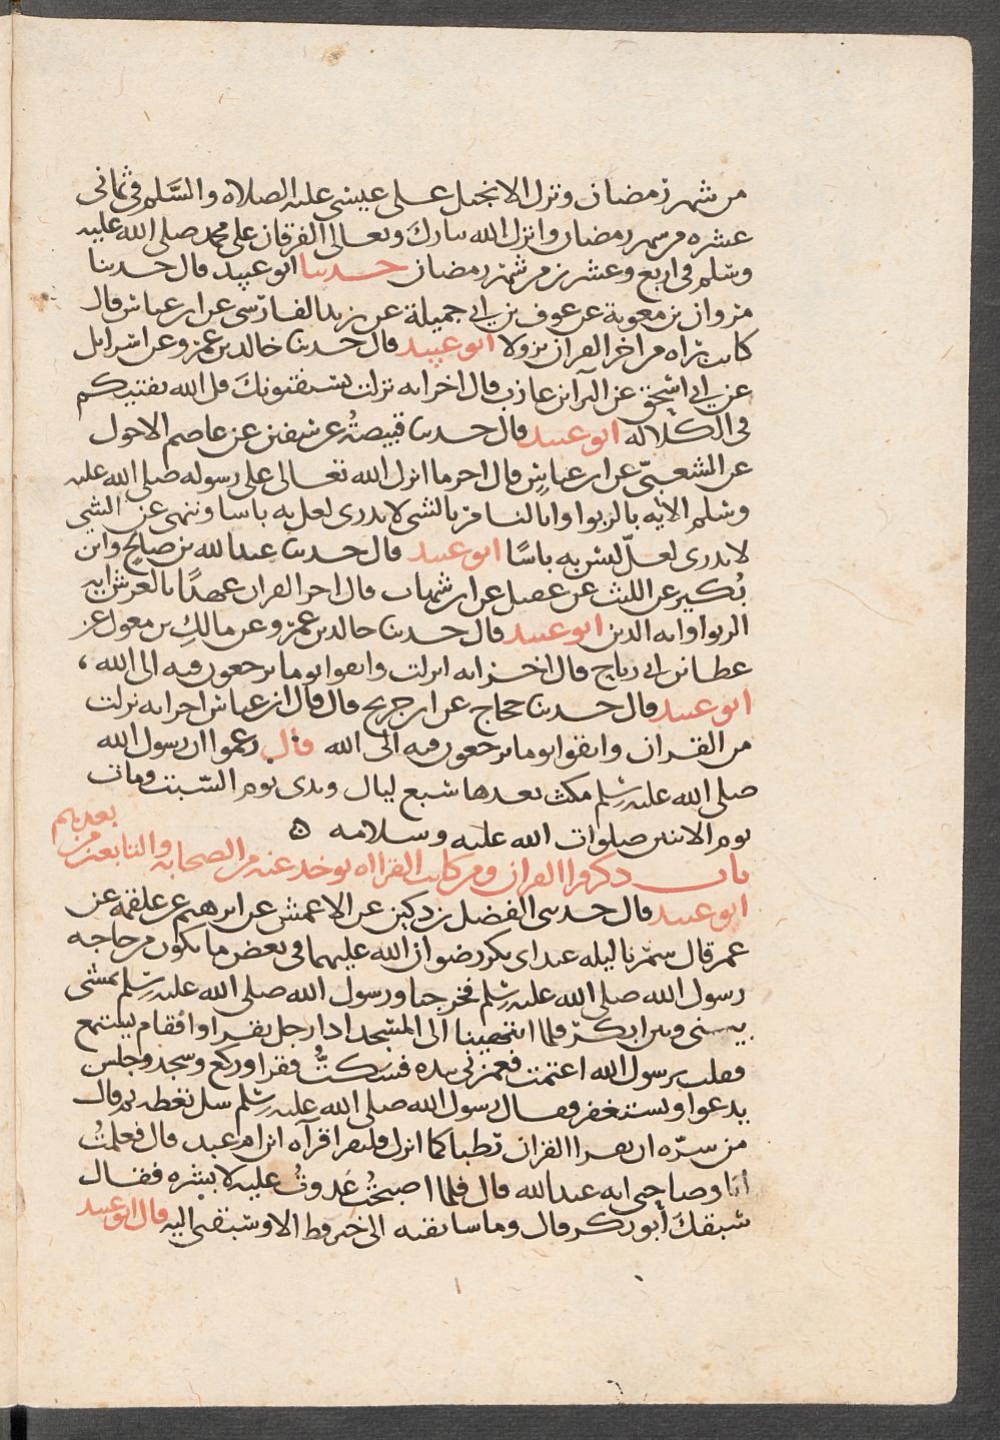 من شهر رمضان ونزل الانجيل على عيسى عليه الصلاه والسلم في ثماني
عشره من شهر رمضان وانزل الله تبارك وتعالى الفرقان على محمد صلى الله عليه
وسلم في اربع وعشرين من شهر رمضان حدثنا ابو عبيد قال حدثنا
مروان بن معوية عن عوف بن ابي جميلة عن يزيد الفارسي عن ابن عباس قال
كانت براه من اخر القران نزولا ابو عبيد قال حدثنا خالد بن عمرو عن اسرايل
عن ابي اسحق عن البرا بن عازب قال اخر ايه نزلت يستفتونك قل الله يفتيكم
في الكلاله ابو عبيد قال حدثنا قبيصة عن سفين عن عاصم الاحول
عن الشعبي عن ابن عباس قال اخر ما انزل الله تعالى على رسوله صلى الله عليه
وسلم الايه بالربوا وانا لنامر بالشي لا ندرى لعل به باسا وننهى عن الشي
لا ندرى لعل ليس به باسا ابو عبيد قال حدثنا عبد الله بن صالح وابن
بكير عن الليث عن عقيل عن ابن شهاب قال اخر القران عهدا بالعرش ايه
الربوا وايه الدين ابو عبيد قال حدثنا خالد بن عمرو عن مالك بن معول عن
عطا بن ابي رباح قال اخر ايه انزلت واتقوا يوما ترجعون فيه الى الله ،
ابو عبيد قال حدثنا حجاج عن ابن جريج قال قال ابن عباس اخر ايه نزلت
من القران واتقوا يوما ترجعون فيه الى الله قال زعموا ان رسول الله
صلى الله عليه وسلم مكث بعدها سبع ليال وبدى يوم السبت ومات
يوم الاثنين صلوات الله عليه وسلامه ه
باب ذكر قرا القران ومن كانت القرااه توخذ عنه من الصحابه والتابعين من بعدهم
ابو عبيد قال حدثني الفضل بن دكين عن الاعمش عن ابرهيم عن علقمه عن
عمر قال سمرنا ليله عند ابي بكر رضوان الله عليهما في بعض ما يكون من حاجه
رسول الله صلى الله عليه وسلم فخرجنا ورسول الله صلى الله عليه وسلم يمشي
بيني وبين ابي بكر فلما انتهينا الى المسجد اذا رجل يقرا وافقام يستمع
فقلت يرسول الله اعتمت فغمزني بيده فسكت فقرا وركع وسجد وجلس
يدعوا ويستغفر فقال رسول الله صلى الله عليه وسلم سل تعطه ثم قال
من سره ان يقرا القران رطبا كما انزل فليقرا قراه ابن ام عبد قال فعلمت
انا وصاحبي انه عبد الله قال فلما اصبحت غدوت عليه لابشره فقال
سبقك أبو بكر قال وما سابقته الى خير قط الا وسبقني اليه قال ابو عبيد